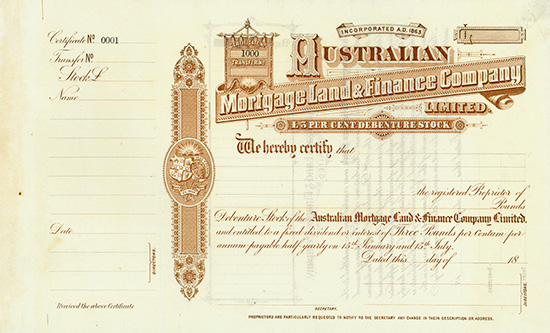 Certificate No 0001
Transfer No
Stock £
Name
Date
Received the above Certificate
DIRECTORS.
1000
TRANSFER No
INCORPORATED A.D. 1863
AUSTRALIAN
Mortgage Land & Finance Company
LIMITED.
£3 PER CENT DEBENTURE STOCK
We hereby certify that
the registered Proprietor of
Pounds
Debenture Stock of the Australian Mortgage Land & Finance Company Limited,
and entitled to a fixed dividend or interest of Three Pounds per centum per
annum payable half yearly on 15th January and 15th July.
Dated this day of 18
DIRECTORS.
SECRETARY.
PROPRIETORS ARE PARTICULARLY REQUESTED TO NOTIFY TO THE SECRETARY ANY CHANGE IN THEIR DESCRIPTION OR ADDRESS.